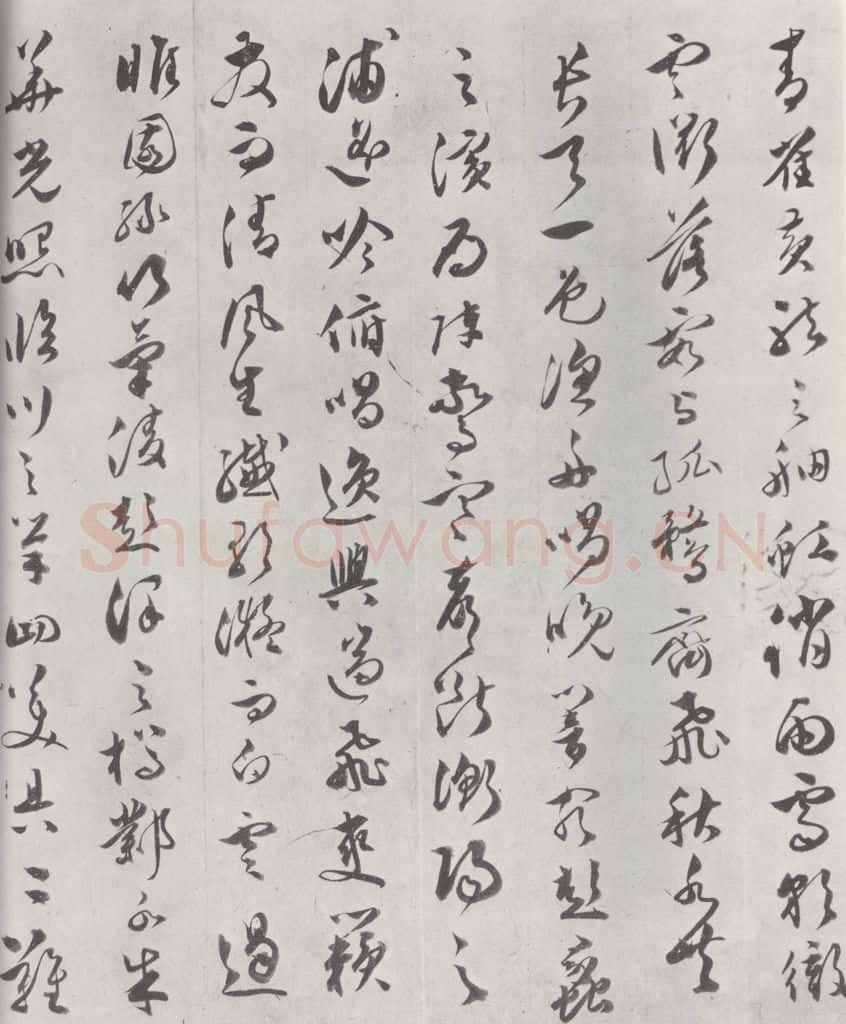 青雀黄龍之舳虹銷雨霽彩徹
雲衢落霞與孤鶩齊飛秋水共
長天一色漁舟唱晚響窮彭蠡
之濱雁陣驚寒聲斷衡陽之
浦遙吟俯唱逸興遄飛爽籟
發而清風生纖歌凝而白雲遏
睢園綠竹氣凌彭澤之樽鄴水朱
華光照臨川之筆四美具二難
Shufawang.CN